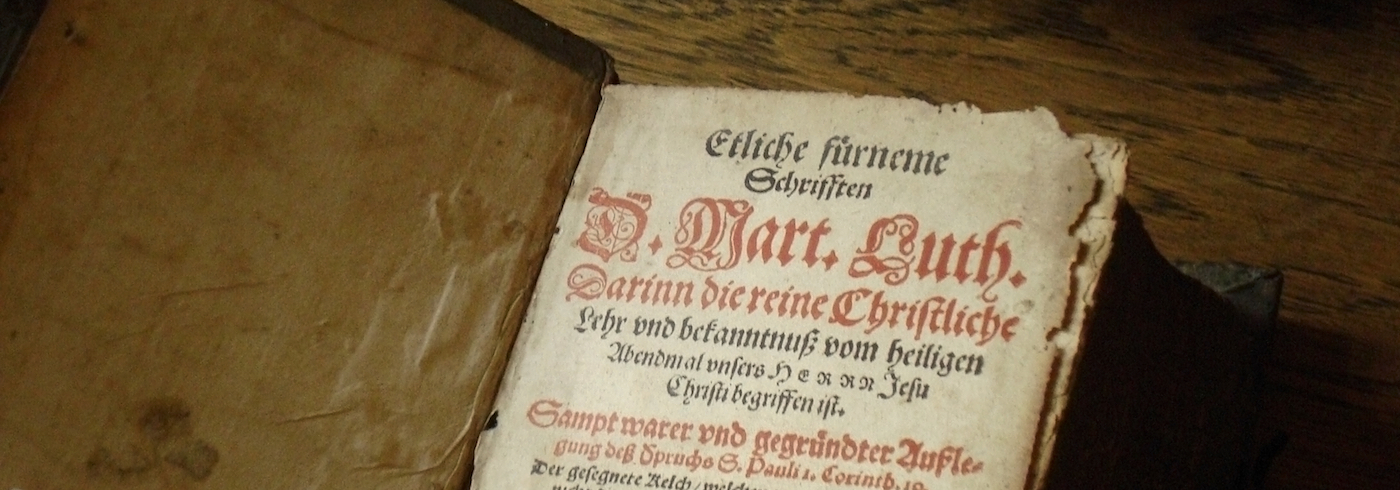 Etliche fürneme
Schrifften
D. Mart. Luth.
Darinn die reine Christliche
Lehr vnd bekanntnuß vom heiligen
Abendmal vnsers HERRN Jesu
Christi begriffen ist.
Sampt warer vnd gegründter Außle-
gung deß Spruchs S. Pauli 1. Corinth. 10.
Der gesegnete Kelch/